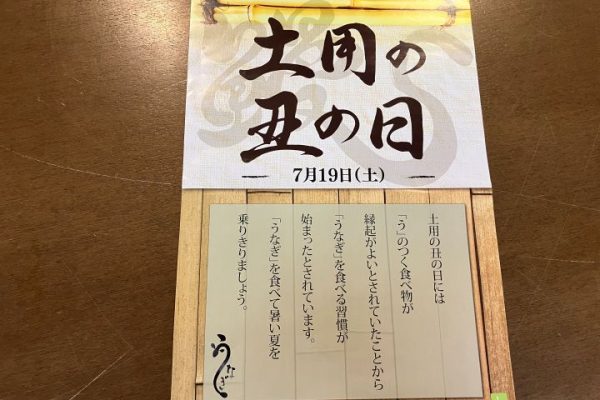 土用の
丑の日
7月19日(土)
土用の丑の日には
「う」のつく食べ物が
縁起がよいとされていたことから
「うなぎ」を食べる習慣が
始まったとされています。
「うなぎ」を食べて暑い夏を
乗りきりましょう。
うなぎ